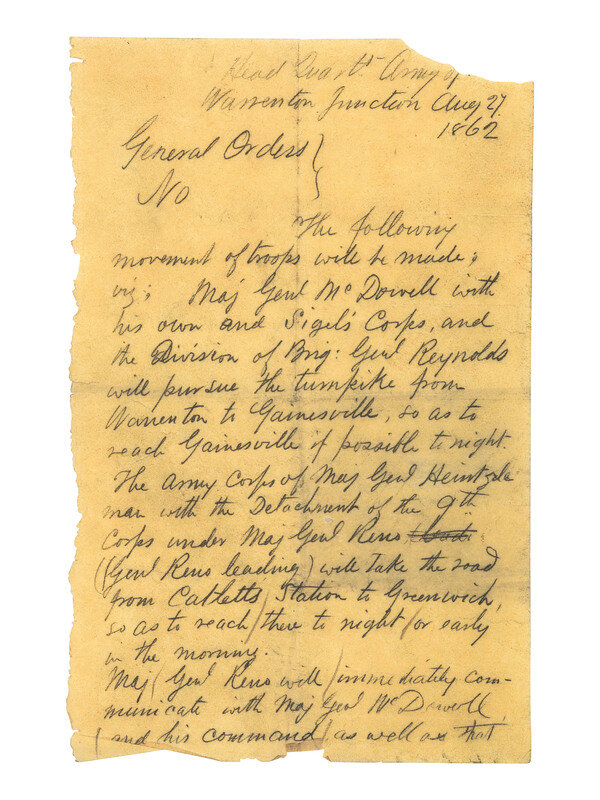 Head Quarts. Army of
Warrenton Junction Aug 27.
1862
General Orders }
No
The following
movement of troops will be made;
viz; Maj Genl McDowell with
his own and Sigel's Corps, and
the Division of Brig: Genl Reynolds
will pursue the turnpike from
Warrenton to Gainesville, so as to
reach Gainesville if possible to night
The Army Corps of Maj Genl Heintzel
man with the Detachment of the 9th
Corps under Maj Genl Reno
(Genl Reno leading) will take the road
from Catletts Station to Greenwich,
so as to reach there to night or early
in the morning.
Maj Genl Reno will immediately com-
municate with Maj Genl McDowell
and his command as well as that